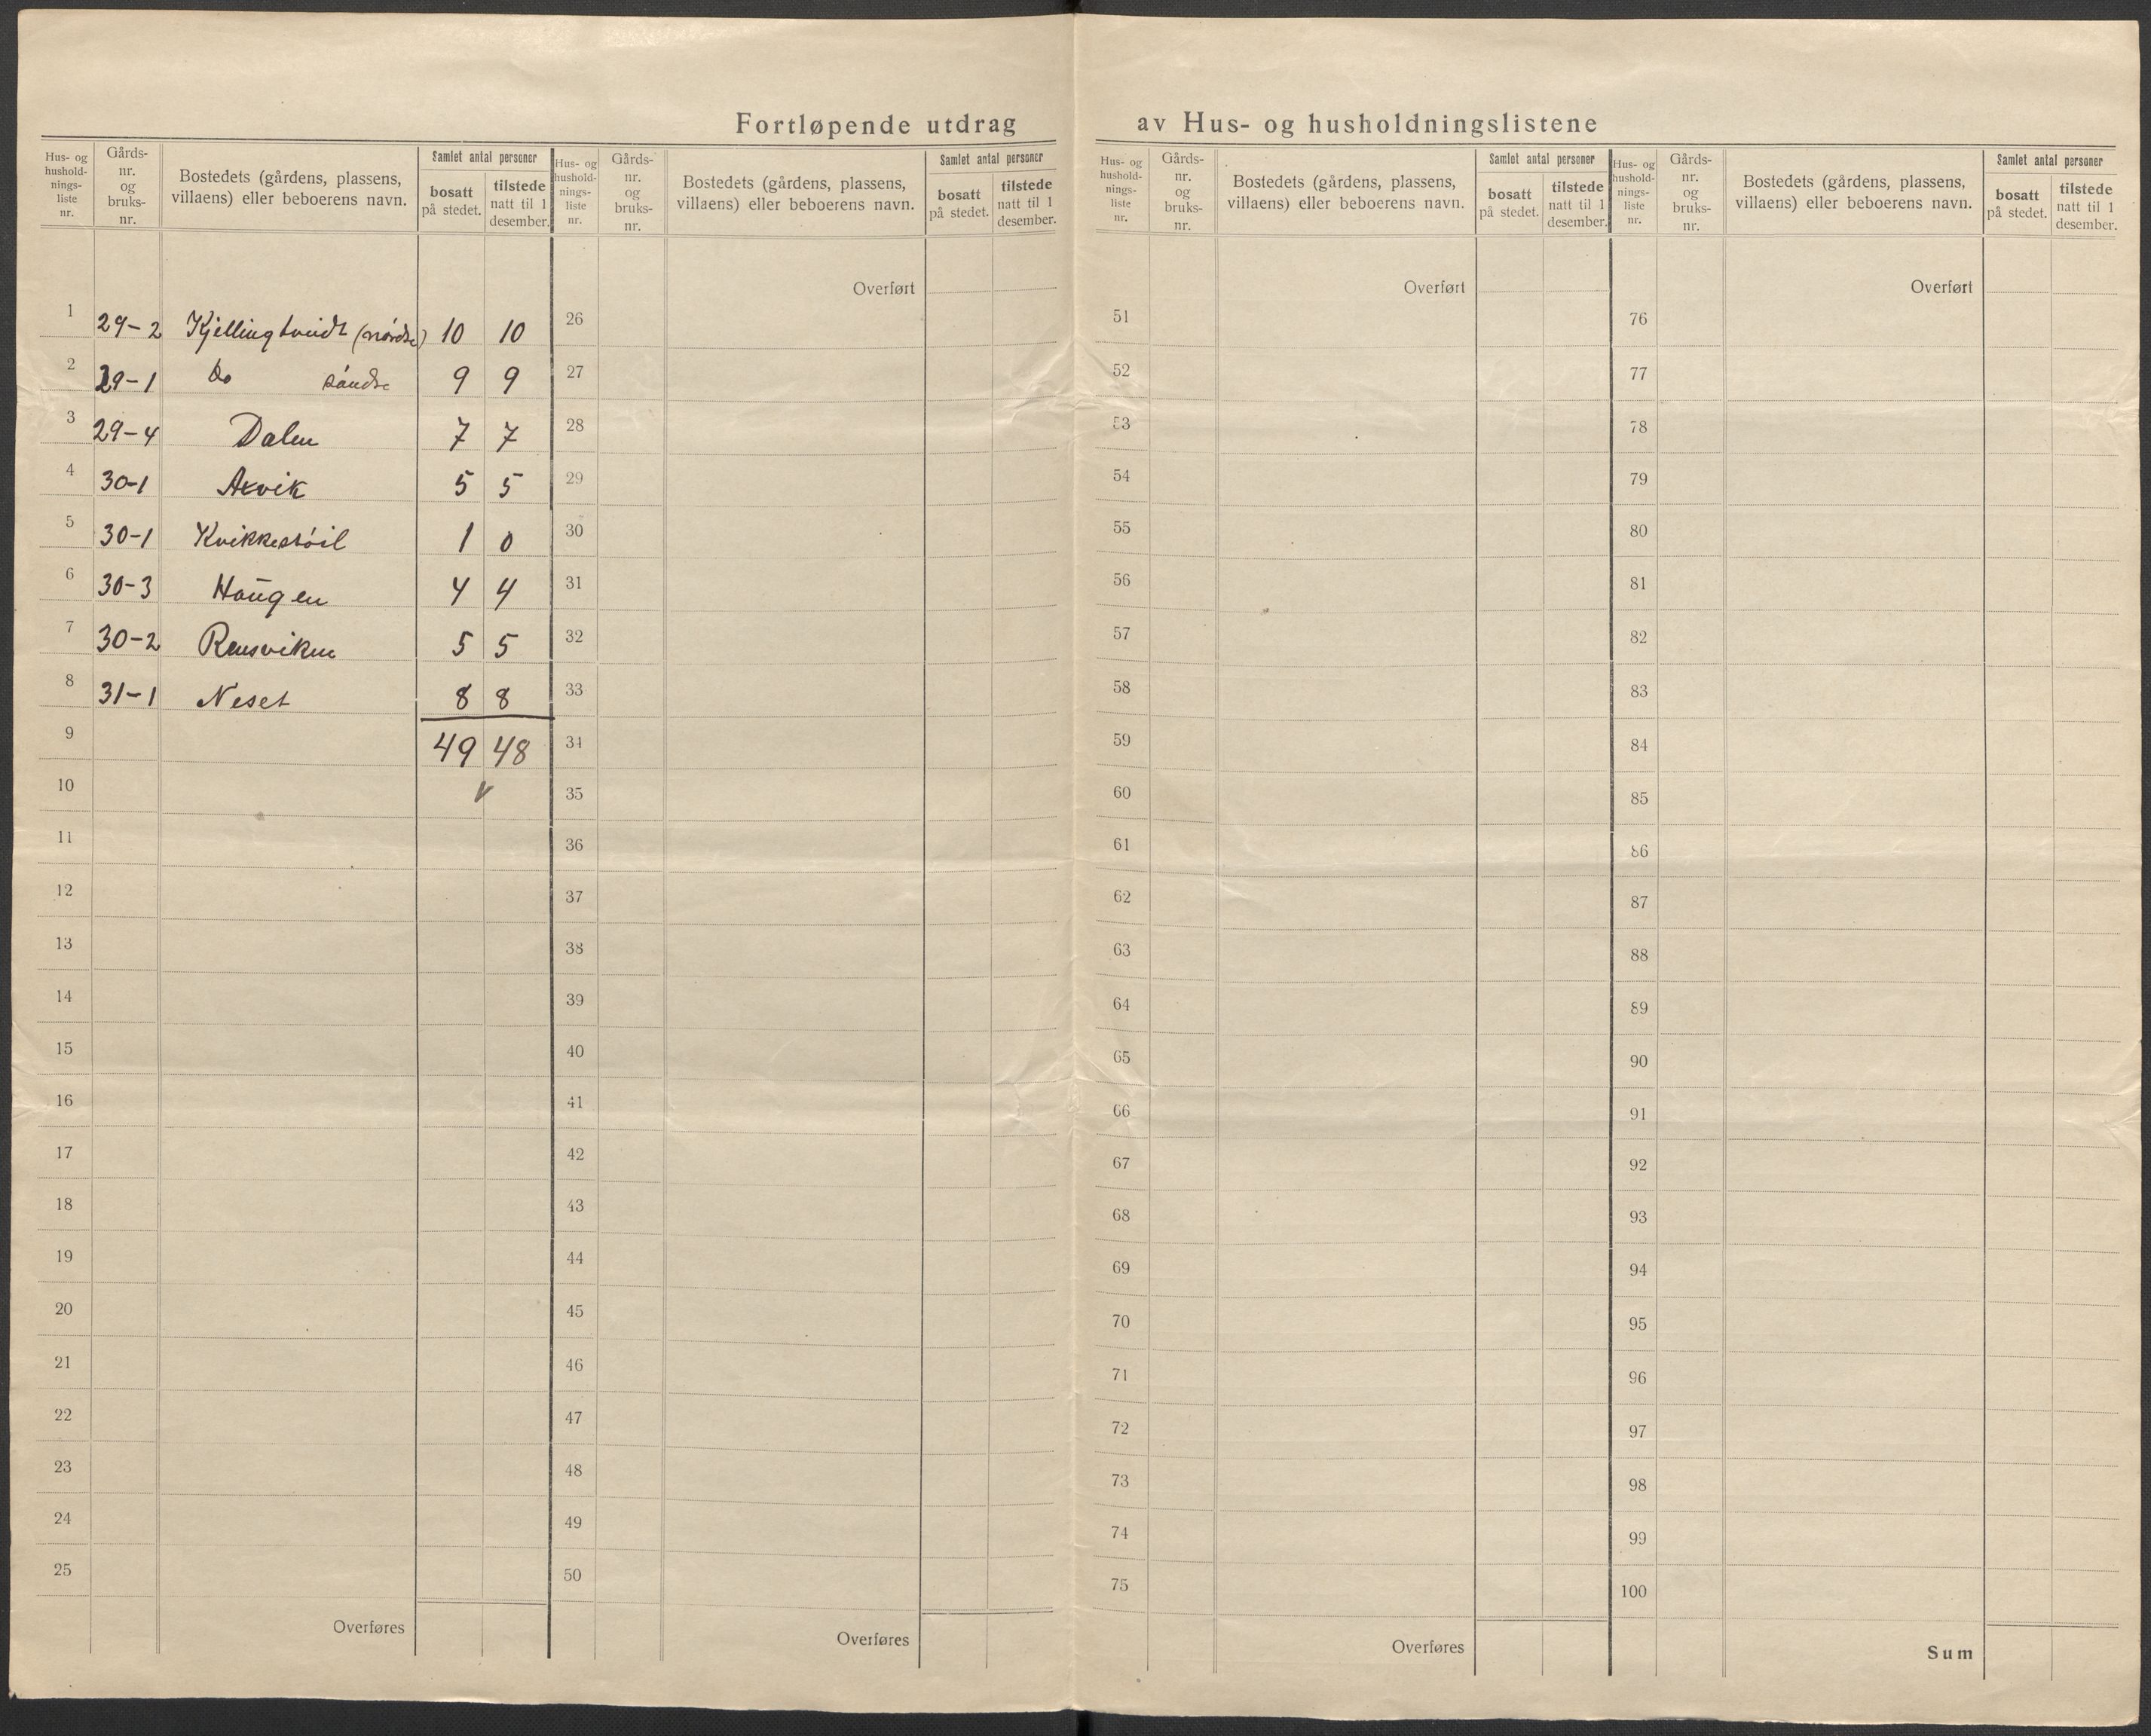 Fortløpende utdrag av Hus- og husholdningslistene
Hus- og hushold- nings- liste nr.
Gårds- nr. og bruks- nr.
Bostedets (gårdens, plassens, villaens) eller beboerens navn.
Samlet antal personer
bosatt på stedet.
tilstede natt til 1 desember.
1 29-2 Kjellingtveidt (nórdre) 10 10
2 29-1 Do sóndre 9 9
3 29-4 Dalen 7 7
4 30-1 Axvik 5 5
5 30-1 Kvikkestóil 1 0
6 30-3 Haugen 4 4
7 30-2 Rensviken 5 5
8 31-1 Neset 8 8
9 49 48
10
11
12
13
14
15
16
17
18
19
20
21
22
23
24
25
Overføres
Hus- og hushold- nings- liste nr.
Gårds- nr. og bruks- nr.
Bostedets (gårdens, plassens, villaens) eller beboerens navn.
Samlet antal personer
bosatt på stedet.
tilstede natt til 1 desember.
Overført
26
27
28
29
30
31
32
33
34
35
36
37
38
39
40
41
42
43
44
45
46
47
48
49
50
Overføres
Hus- og hushold- nings- liste nr.
Gårds- nr. og bruks- nr.
Bostedets (gårdens, plassens, villaens) eller beboerens navn.
Samlet antal personer
bosatt på stedet.
tilstede natt til 1 desember.
Overført
51
52
53
54
55
56
57
58
59
60
61
62
63
64
65
66
67
68
69
70
71
72
73
74
75
Overføres
Hus- og hushold- nings- liste nr.
Gårds- nr. og bruks- nr.
Bostedets (gårdens, plassens, villaens) eller beboerens navn.
Samlet antal personer
bosatt på stedet.
tilstede natt til 1 desember.
Overført
76
77
78
79
80
81
82
83
84
85
86
87
88
89
90
91
92
93
94
95
96
97
98
99
100
Sum